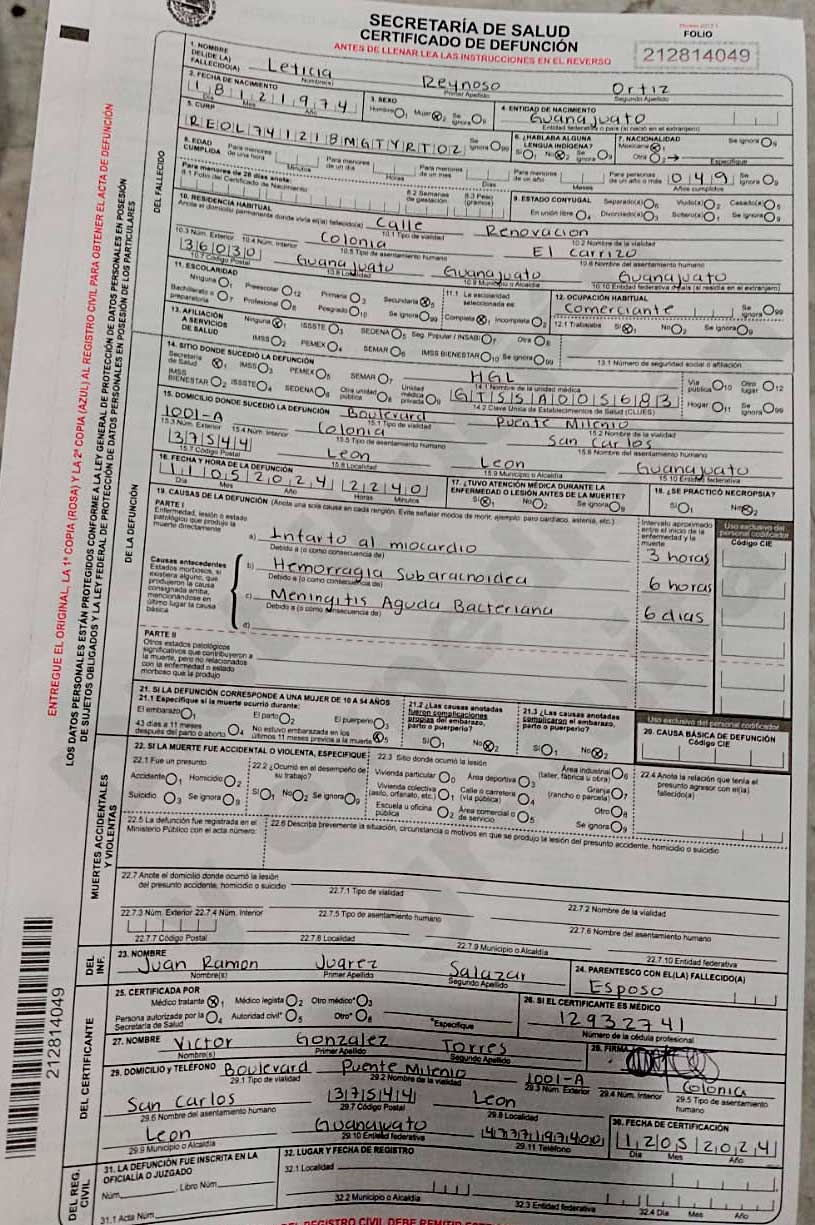 SECRETARÍA DE SALUD
CERTIFICADO DE DEFUNCIÓN
ANTES DE LLENAR LEA LAS INSTRUCCIONES EN EL REVERSO
FOLIO
212814049
ENTREGUE EL ORIGINAL, LA 1ª COPIA (ROSA) Y LA 2ª COPIA (AZUL) AL REGISTRO CIVIL PARA OBTENER EL ACTA DE DEFUNCIÓN
LOS DATOS PERSONALES ESTÁN PROTEGIDOS CONFORME A LA LEY GENERAL DE PROTECCIÓN DE DATOS PERSONALES EN POSESIÓN
DE SUJETOS OBLIGADOS Y LA LEY FEDERAL DE PROTECCIÓN DE DATOS PERSONALES EN POSESIÓN DE LOS PARTICULARES
DEL FALLECIDO
1. NOMBRE DEL(DE LA) FALLECIDO(A) Leticia Reynoso Ortiz
Nombre(s) Primer Apellido Segundo Apellido
2. FECHA DE NACIMIENTO 18121974 3. SEXO Hombre 1 Mujer 2 Se ignora 9 4. ENTIDAD DE NACIMIENTO Guanajuato
Día Mes Año Entidad federativa o país (si nació en el extranjero)
5. CURP REOL741218MGTYRT02 Se ignora 99 6. ¿HABLABA ALGUNA LENGUA INDÍGENA? Sí 1 No 2 Se ignora 9 7. NACIONALIDAD Mexicana 1 Otra 2 Se ignora 9
Especifique
8. EDAD CUMPLIDA Para menores de una hora Minutos Para menores de un día Horas Para menores de un mes Días Para menores de un año Meses Para personas de un año o más 049 Años cumplidos Se ignora 9
Para menores de 28 días anote:
8.1 Folio del Certificado de Nacimiento 8.2 Semanas de gestación 8.3 Peso (gramos)
9. ESTADO CONYUGAL Separado(a) 6 Viudo(a) 2 Casado(a) 5
En unión libre 4 Divorciado(a) 3 Soltero(a) 1 Se ignora 9
10. RESIDENCIA HABITUAL
Anote el domicilio permanente donde vivía el(la) fallecido(a) Calle Renovacion
10.1 Tipo de vialidad 10.2 Nombre de la vialidad
10.3 Núm. Exterior 10.4 Núm. Interior Colonia El Carrizo
10.5 Tipo de asentamiento humano 10.6 Nombre del asentamiento humano
36030 Guanajuato Guanajuato Guanajuato
10.7 Código Postal 10.8 Localidad 10.9 Municipio o Alcaldía 10.10 Entidad federativa o país (si residía en el extranjero)
11. ESCOLARIDAD Ninguna 1 Preescolar 12 Primaria 3 Secundaria 5
Bachillerato o preparatoria 7 Profesional 8 Posgrado 10 Se ignora 99
11.1 La escolaridad seleccionada es: Completa 1 Incompleta 2
12. OCUPACIÓN HABITUAL Comerciante Se ignora 99
12.1 Trabajaba Sí 1 No 2 Se ignora 9
13. AFILIACIÓN A SERVICIOS DE SALUD Ninguna 1 ISSSTE 3 SEDENA 5 Seg. Popular / INSABI 7 Otra 8
IMSS 2 PEMEX 4 SEMAR 6 IMSS BIENESTAR 10 Se ignora 99
13.1 Número de seguridad social o afiliación
DE LA DEFUNCIÓN
14. SITIO DONDE SUCEDIÓ LA DEFUNCIÓN
Secretaría de Salud 1 IMSS 3 PEMEX 5 SEMAR 7 HGL
14.1 Nombre de la unidad médica
IMSS BIENESTAR 2 ISSSTE 4 SEDENA 6 Otra unidad pública 8 Unidad médica privada 9 GTSSA005683
14.2 Clave Única de Establecimientos de Salud (CLUES)
Vía pública 10 Otro lugar 12
Hogar 11 Se ignora 99
15. DOMICILIO DONDE SUCEDIÓ LA DEFUNCIÓN Boulevard Puente Milenio
15.1 Tipo de vialidad 15.2 Nombre de la vialidad
1001-A Colonia San Carlos
15.3 Núm. Exterior 15.4 Núm. Interior 15.5 Tipo de asentamiento humano 15.6 Nombre del asentamiento humano
37544 Leon Leon Guanajuato
15.7 Código Postal 15.8 Localidad 15.9 Municipio o Alcaldía 15.10 Entidad federativa
16. FECHA Y HORA DE LA DEFUNCIÓN
11052024 2240
Día Mes Año Horas Minutos
17. ¿TUVO ATENCIÓN MÉDICA DURANTE LA ENFERMEDAD O LESIÓN ANTES DE LA MUERTE? Sí 1 No 2 Se ignora 9
18. ¿SE PRACTICÓ NECROPSIA? Sí 1 No 2
19. CAUSAS DE LA DEFUNCIÓN (Anote una sola causa en cada renglón. Evite señalar modos de morir, ejemplo: paro cardiaco, astenia, etc.)
PARTE I
Enfermedad, lesión o estado patológico que produjo la muerte directamente
Intervalo aproximado entre el inicio de la enfermedad y la muerte
Uso exclusivo del personal codificador
Código CIE
a) Infarto al miocardio 3 horas
Debido a (o como consecuencia de)
Causas antecedentes
Estados morbosos, si existiera alguno, que produjeron la causa consignada arriba, mencionándose en último lugar la causa básica
b) Hemorragia Subaracnoidea 6 horas
Debido a (o como consecuencia de)
c) Meningitis Aguda Bacteriana 6 dias
Debido a (o como consecuencia de)
d)
PARTE II
Otros estados patológicos significativos que contribuyeron a la muerte, pero no relacionados con la enfermedad o estado morboso que la produjo
21. SI LA DEFUNCIÓN CORRESPONDE A UNA MUJER DE 10 A 54 AÑOS
21.1 Especifique si la muerte ocurrió durante:
El embarazo 1 El parto 2 El puerperio 3
43 días a 11 meses después del parto o aborto 4 No estuvo embarazada en los últimos 11 meses previos a la muerte 5
21.2 ¿Las causas anotadas fueron complicaciones propias del embarazo, parto o puerperio? Sí 1 No 2
21.3 ¿Las causas anotadas complicaron el embarazo, parto o puerperio? Sí 1 No 2
Uso exclusivo del personal codificador
20. CAUSA BÁSICA DE DEFUNCIÓN
Código CIE
MUERTES ACCIDENTALES Y VIOLENTAS
22. SI LA MUERTE FUE ACCIDENTAL O VIOLENTA, ESPECIFIQUE
22.1 Fue un presunto
Accidente 1 Homicidio 2
Suicidio 3 Se ignora 9
22.2 ¿Ocurrió en el desempeño de su trabajo?
Sí 1 No 2 Se ignora 9
22.3 Sitio donde ocurrió la lesión
Vivienda particular 0 Área deportiva 3 Área industrial (taller, fábrica u obra) 6
Vivienda colectiva (asilo, orfanato, etc.) 1 Calle o carretera (vía pública) 4 Granja (rancho o parcela) 7
Escuela u oficina pública 2 Área comercial o de servicio 5 Otro 8
Se ignora 9
22.4 Anote la relación que tenía el presunto agresor con el(la) fallecido(a)
22.5 La defunción fue registrada en el Ministerio Público con el acta número:
22.6 Describa brevemente la situación, circunstancia o motivos en que se produjo la lesión del presunto accidente, homicidio o suicidio
22.7 Anote el domicilio donde ocurrió la lesión del presunto accidente, homicidio o suicidio
22.7.1 Tipo de vialidad 22.7.2 Nombre de la vialidad
22.7.3 Núm. Exterior 22.7.4 Núm. Interior 22.7.5 Tipo de asentamiento humano 22.7.6 Nombre del asentamiento humano
22.7.7 Código Postal 22.7.8 Localidad 22.7.9 Municipio o Alcaldía 22.7.10 Entidad federativa
DEL INF.
23. NOMBRE Juan Ramon Juarez Salazar
Nombre(s) Primer Apellido Segundo Apellido
24. PARENTESCO CON EL(LA) FALLECIDO(A)
Esposo
DEL CERTIFICANTE
25. CERTIFICADA POR
Médico tratante 1 Médico legista 2 Otro médico* 3
Persona autorizada por la Secretaría de Salud 4 Autoridad civil* 5 Otro* 8 *Especifique
26. SI EL CERTIFICANTE ES MÉDICO
12932741
Número de la cédula profesional
27. NOMBRE Victor Gonzalez Torres
Nombre(s) Primer Apellido Segundo Apellido
28. FIRMA
29. DOMICILIO Y TELÉFONO Boulevard Puente Milenio 1001-A Colonia
29.1 Tipo de vialidad 29.2 Nombre de la vialidad 29.3 Núm. Exterior 29.4 Núm. Interior 29.5 Tipo de asentamiento humano
San Carlos 37544 Leon
29.6 Nombre del asentamiento humano 29.7 Código Postal 29.8 Localidad
Leon Guanajuato
29.9 Municipio o Alcaldía 29.10 Entidad federativa 29.11 Teléfono
30. FECHA DE CERTIFICACIÓN
12052024
Día Mes Año
DEL REG. CIVIL
31. LA DEFUNCIÓN FUE INSCRITA EN LA OFICIALÍA O JUZGADO
Núm. Libro Núm.
31.1 Acta Núm.
32. LUGAR Y FECHA DE REGISTRO
32.1 Localidad
32.2 Municipio o Alcaldía 32.3 Entidad federativa 32.4 Día Mes Año
212814049